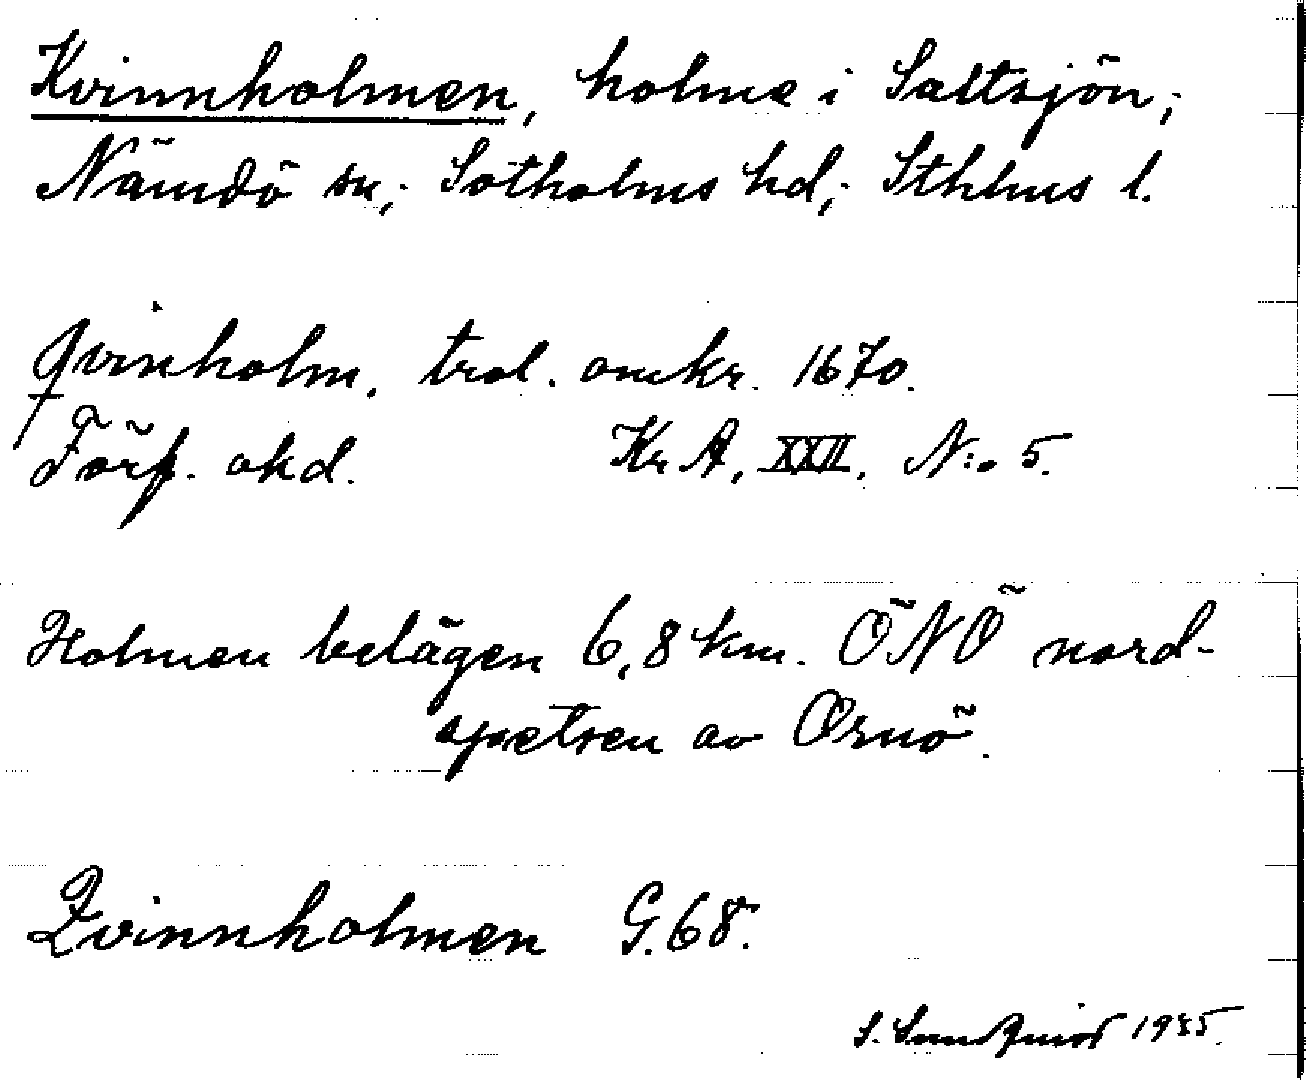 Kvinnholmen, holme i Saltsjön;
Nämdö sn; Sotholms hd; Sthlms l.
Qvinholm. trol. omkr. 1670.
Förf. okd. Kr A, XXII, N:o 5.
Holmen belägen 6,8 km. ÖNÖ nord-
spetsen av Ornö.
Qvinnholmen G. 68.
S. Sundquist